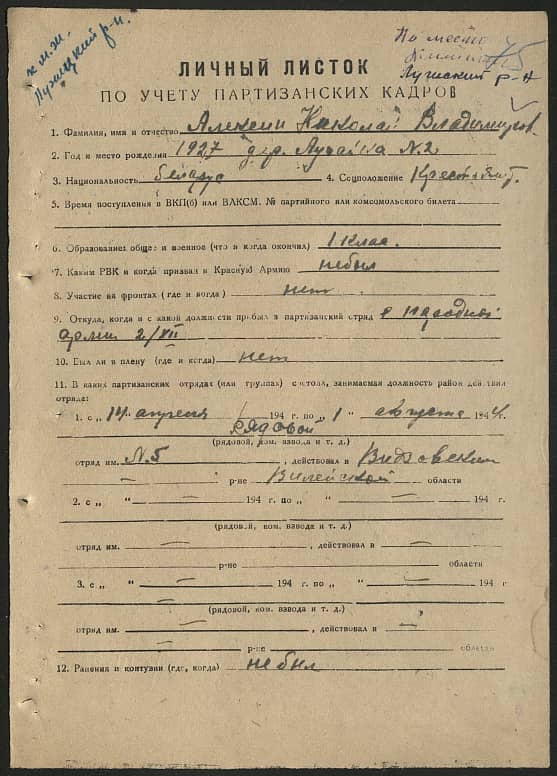 к м. ж.
По месту
75
р-н.
р-н
ЛИЧНЫЙ ЛИСТОК
ПО УЧЕТУ ПАРТИЗАНСКИХ КАДРОВ
1. Фамилия, имя и отчество Алексин Николай Владимиров.
2. Год и место рождения 1927 дер. Лучайка N.2
3. Национальность беларус 4. Соцположение Крестьян.
5. Время поступления в ВКП(б) или ВЛКСМ. № партийного или комсомольского билета
6. Образование: общее и военное (что и когда окончил) 1 клас.
7. Каким РВК и когда призван в Красную Армию небыл
8. Участие на фронтах (где и когда) нет
9. Откуда, когда и с какой должности прибыл в партизанский отряд с народной
армии 2/VII
10. Был ли в плену (где и когда) нет
11. В каких партизанских отрядах (или группах) состоял, занимаемая должность район действия
отряда:
1. с „ 14 „ апреля 194 г. по „ 1 „ августа 1944 г.
Рядовой
(рядовой, ком. взвода и т. д.)
отряд им. N.5 , действовал в Видзовским
— р-не Вилейской области
2. с „ — „ — 194 г. по „ „ — 194 г.
(рядовой, ком. взвода и т. д.)
отряд им. — , действовал в —
р-не — области
3. с „ „ — 194 г. по „ „ — 194 г
(рядовой, ком. взвода и т. д.)
отряд им. — , действовал в —
— р-не — области
12. Ранения и контузии (где, когда) небыл